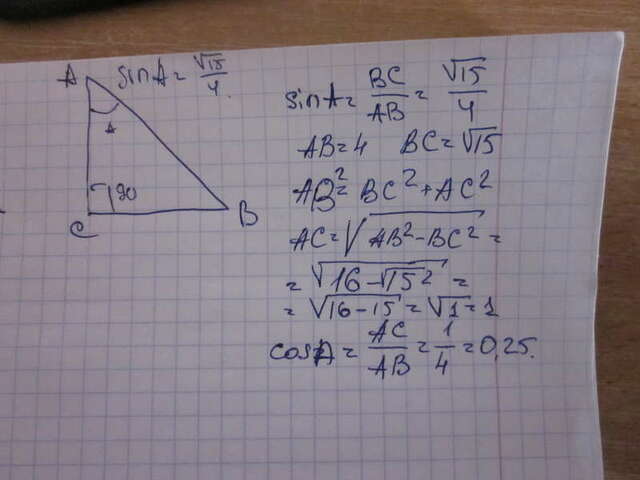 A sinA = √15/4.
A
90
C
B
sinA = BC/AB = √15/4
AB=4 BC=√15
AB² = BC² + AC²
AC = √AB²-BC² =
= √16-√15² =
= √16-15 = √1 = 1
cosA = AC/AB = 1/4 = 0,25.